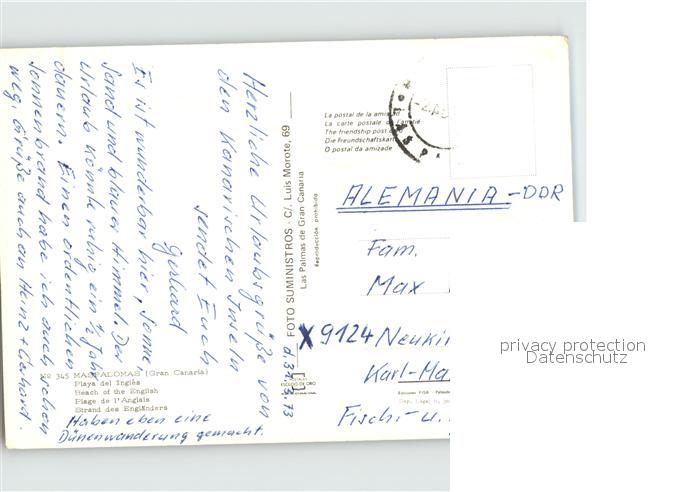 Herzliche Urlaubsgrüße von
den Kanarischen Inseln
sendet Euch
Gerhard
Es ist wunderbar hier, Sonne
Sand und blauer Himmel. Der
Urlaub könnte ruhig ein ½ Jahr
dauern. Einen ordentlichen
Sonnenbrand habe ich auch schon
weg. Grüße auch an Heinz + Gerhard.
Nº 345 MASPALOMAS (Gran Canaria)
Playa del Inglés
Beach of the English
Plage de l'Anglais
Strand des Engländers
Haben eben eine
Dünenwanderung gemacht.
FOTO SUMINISTROS - C/. Luis Morote, 69
Las Palmas de Gran Canaria
Reproducción prohibida
ESCUDO DE ORO
d. 31.3.73
La postal de la amistad
La carte postale de l'amitié
The friendship post
Die Freundschaftskart
O postal da amizade
ALEMANIA - DDR
Fam.
Max
X 9124 Neukir
Karl-Ma
Fischt-u.
privacy protection
Datenschutz